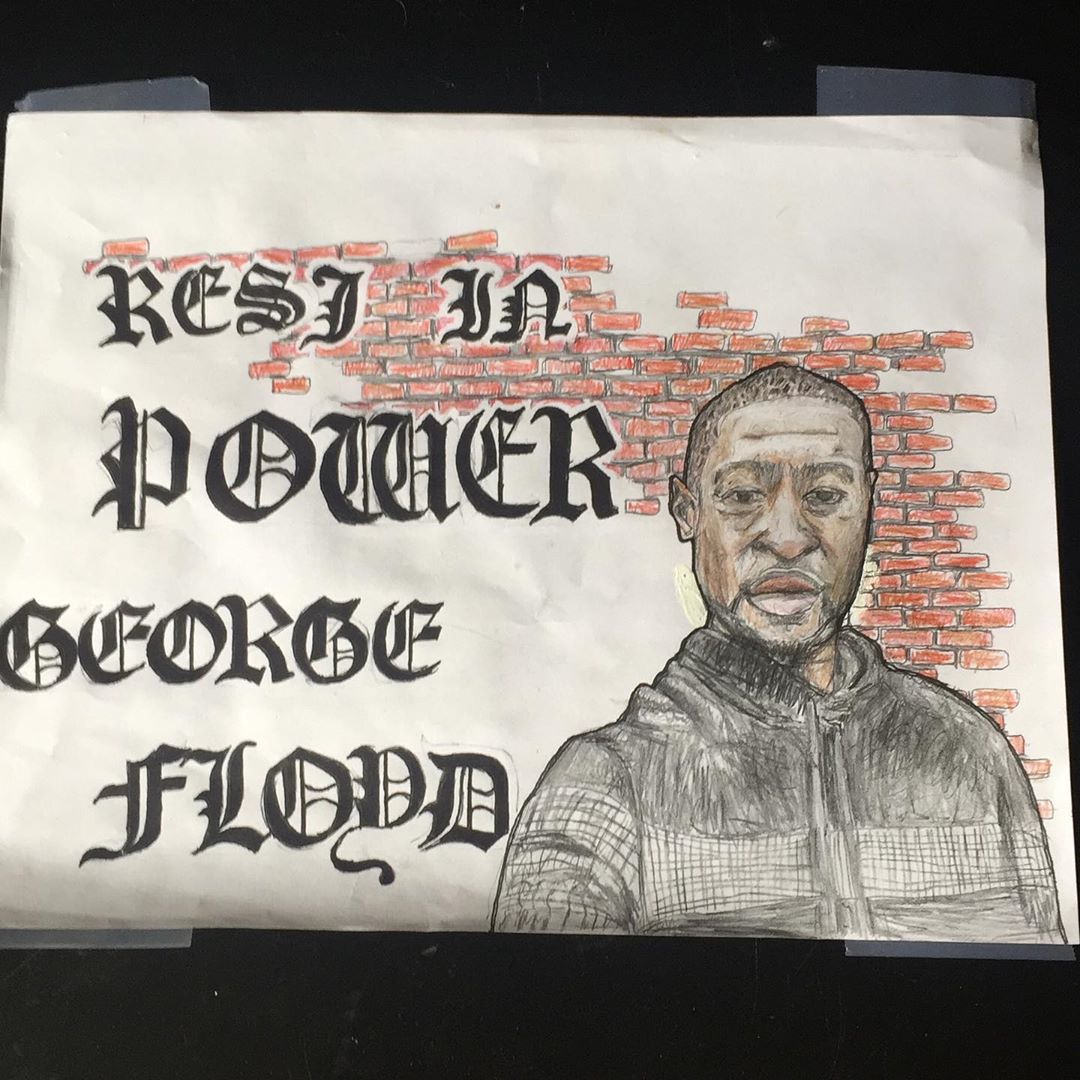 REST IN
POWER
GEORGE
FLOYD